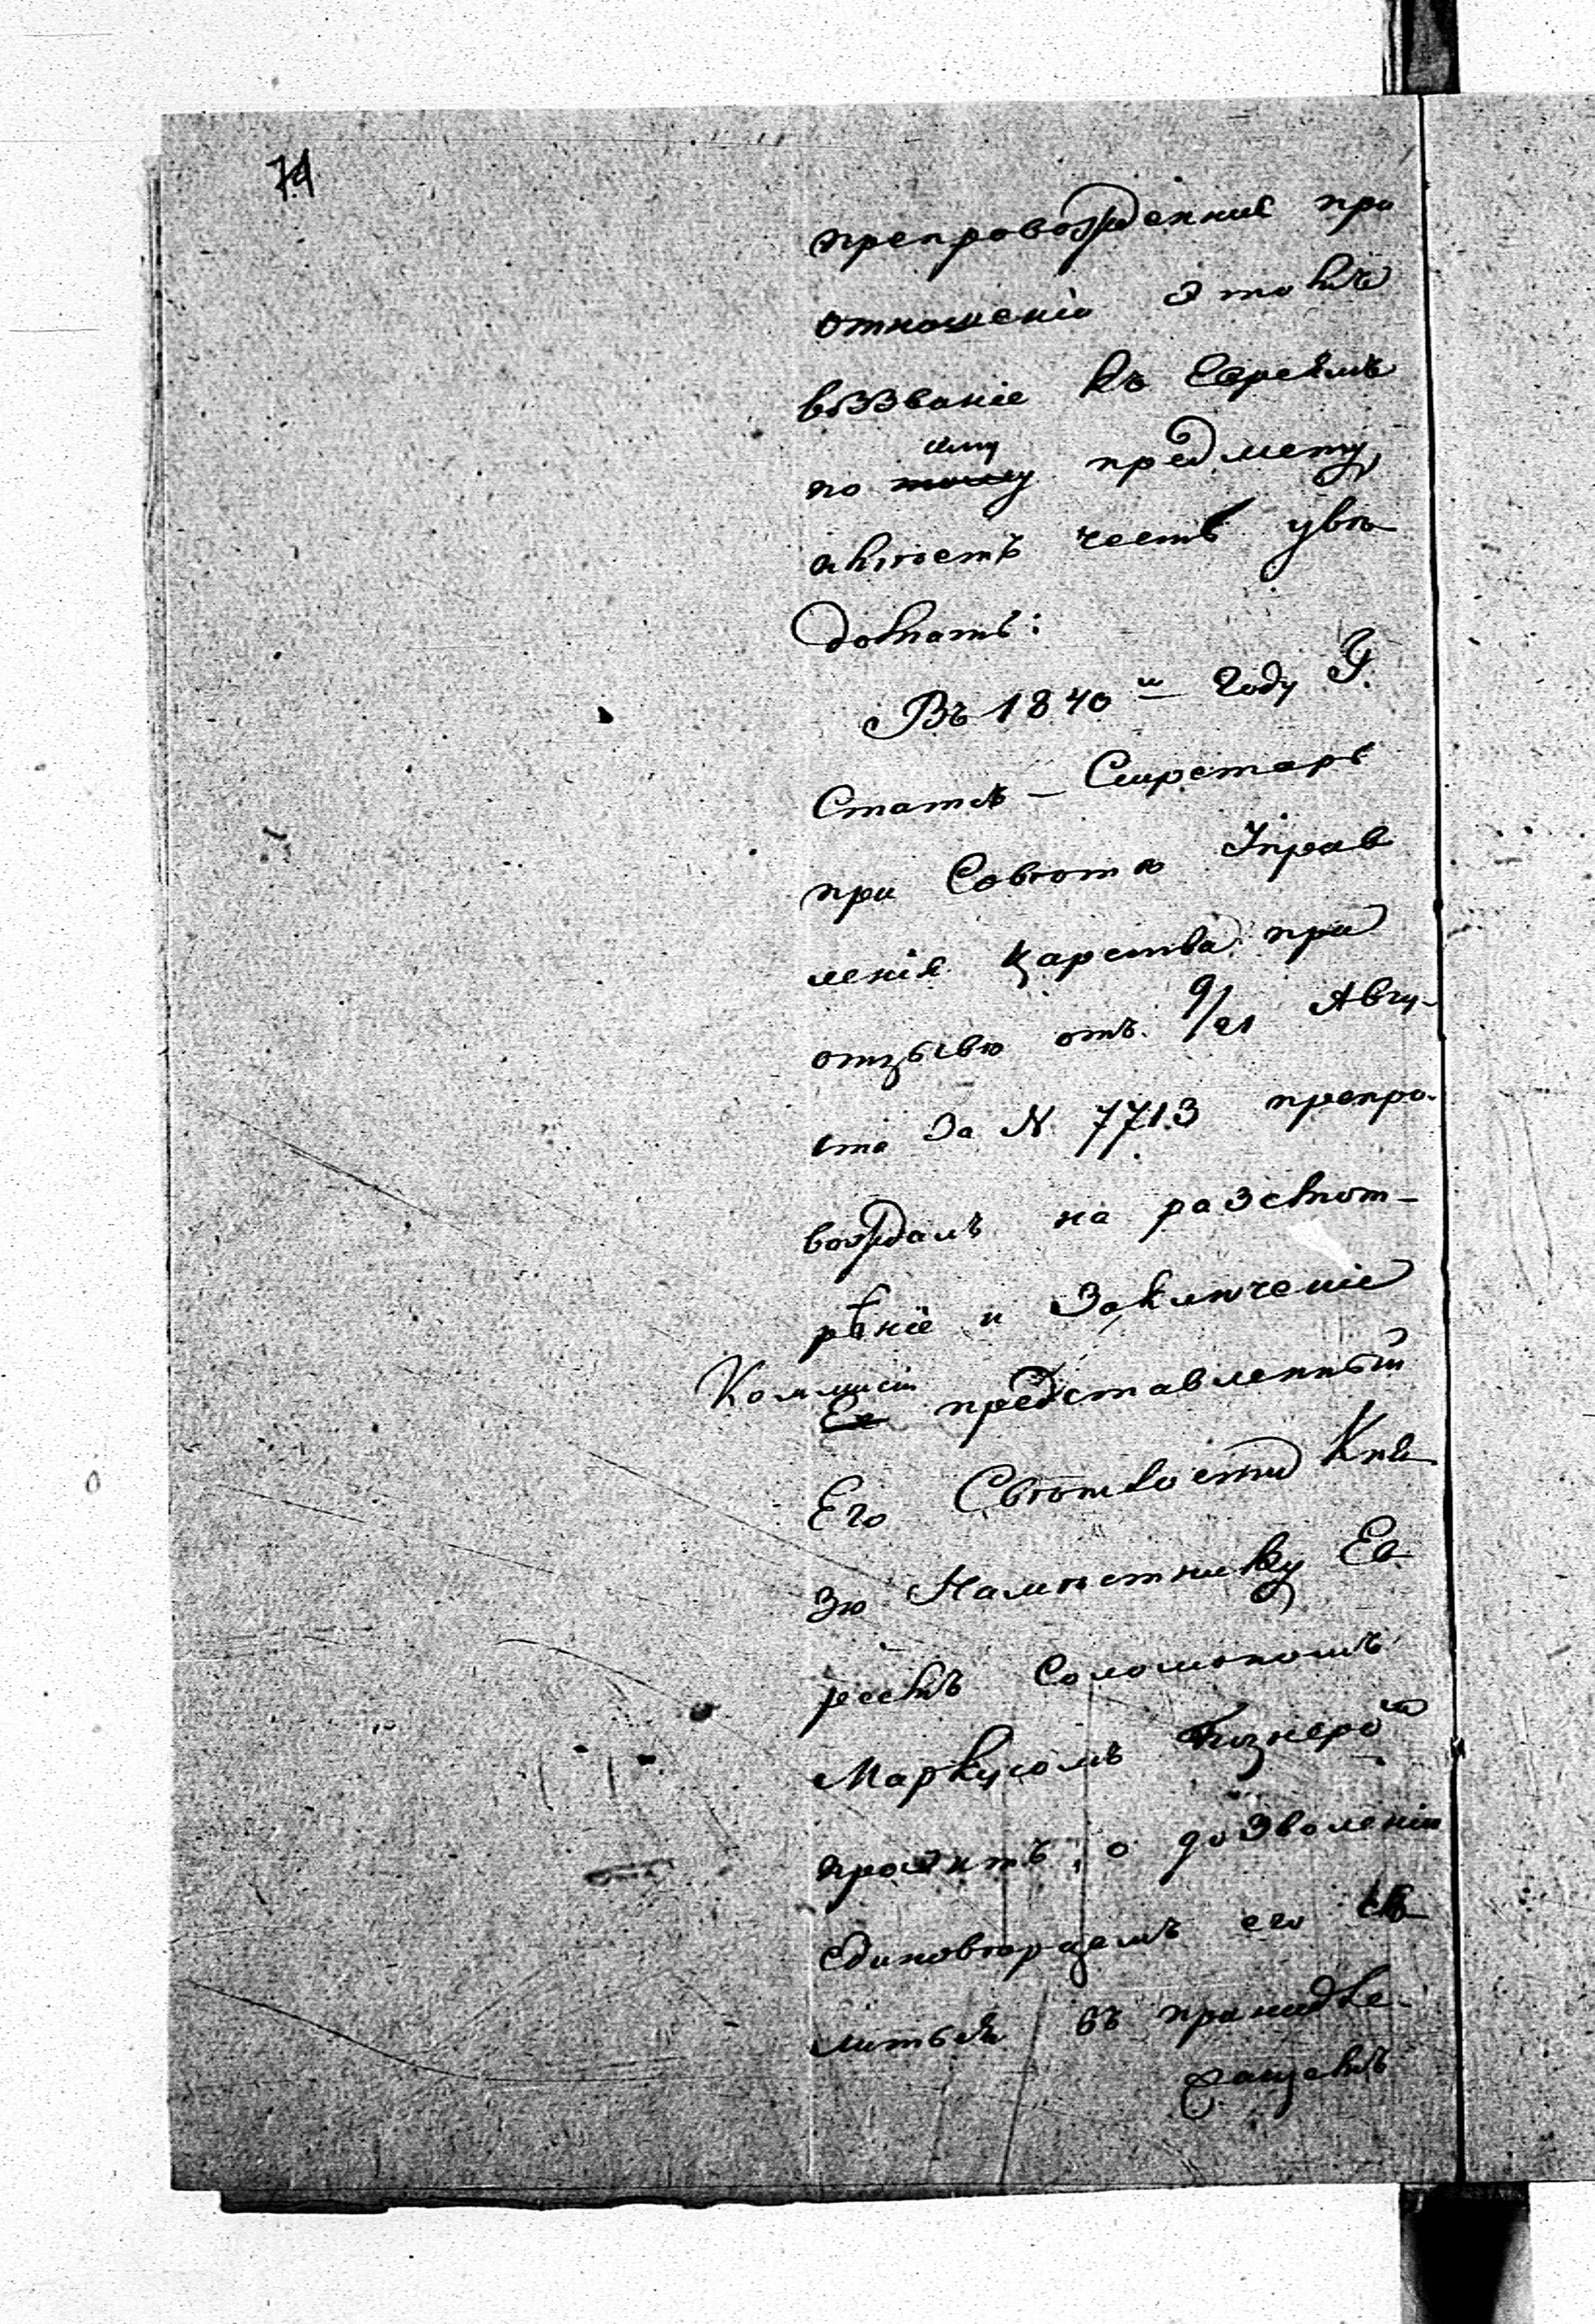 74
препровожденнiе при
отношенiи этомъ
воззванiе къ Евреямъ
сему
по тому предмету,
имѣетъ честь увѣ
домить:
Въ 1840 м году Г.
Статсъ-Секретарь
при Совѣтѣ Управ
ленiя Царства при
отзывѣ отъ 9/21 Авгу-
ста за N 7713 препро-
вождалъ на разсмот-
рѣнiе и заключенiе
Коммисiи
Ея представленный
Его Свѣтлости Кня
зю Намѣстнику Ев
реемъ Соломономъ
Маркусомъ Познеро мъ
проэктъ, о дозволенiи
единовѣрцамъ его
литься въ